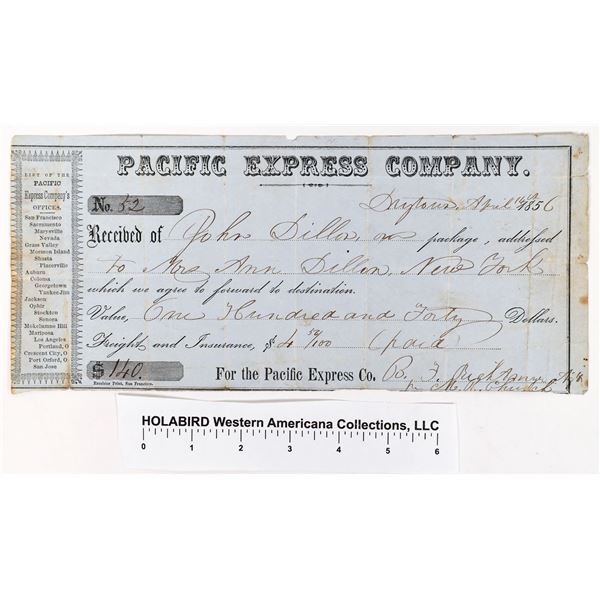 PACIFIC EXPRESS COMPANY.
LIST OF THE
PACIFIC
Express Company's
OFFICES.
San Francisco
Sacramento
Marysville
Nevada
Grass Valley
Mormon Island
Shasta
Placerville
Auburn
Coloma
Georgetown
Yankee Jim
Jackson
Ophir
Stockton
Sonora
Mokelumne Hill
Mariposa
Los Angeles
Portland, O
Crescent City, O
Port Orford, O
San Jose
No. 52
Drytown April 1856
Received of John Dillon, one package, addressed
to Mrs Ann Dillon, New York
which we agree to forward to destination.
Value, One Hundred and Forty Dollars.
Freight and Insurance, $ 4 /100 (paid
$ 140.
For the Pacific Express Co. R.
Excelsior Print, San Francisco.
HOLABIRD Western Americana Collections, LLC
0 1 2 3 4 5 6